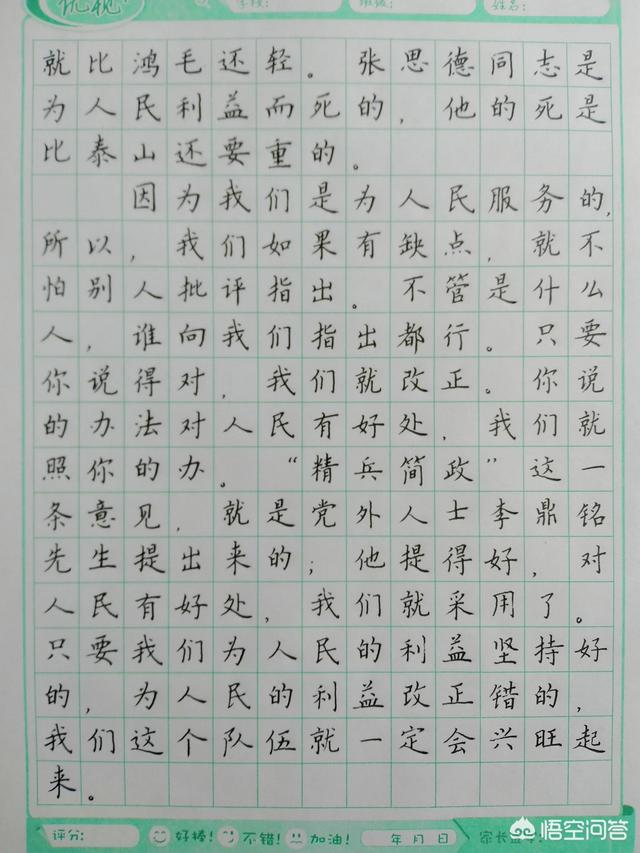 优视
学校: 班级: 姓名:
就比鸿毛还轻。张思德同志是
为人民利益而死的，他的死是
比泰山还要重的。
因为我们是为人民服务的，
所以，我们如果有缺点，就不
怕别人批评指出。不管是什么
人，谁向我们指出都行。只要
你说得对，我们就改正。你说
的办法对人民有好处，我们就
照你的办。“精兵简政”这一
条意见，就是党外人士李鼎铭
先生提出来的；他提得好，对
人民有好处，我们就采用了。
只要我们为人民的利益坚持好
的，为人民的利益改正错的，
我们这个队伍就一定会兴旺起
来。
评分: 好棒! 不错! 加油! 年 月 日 家长
悟空问答